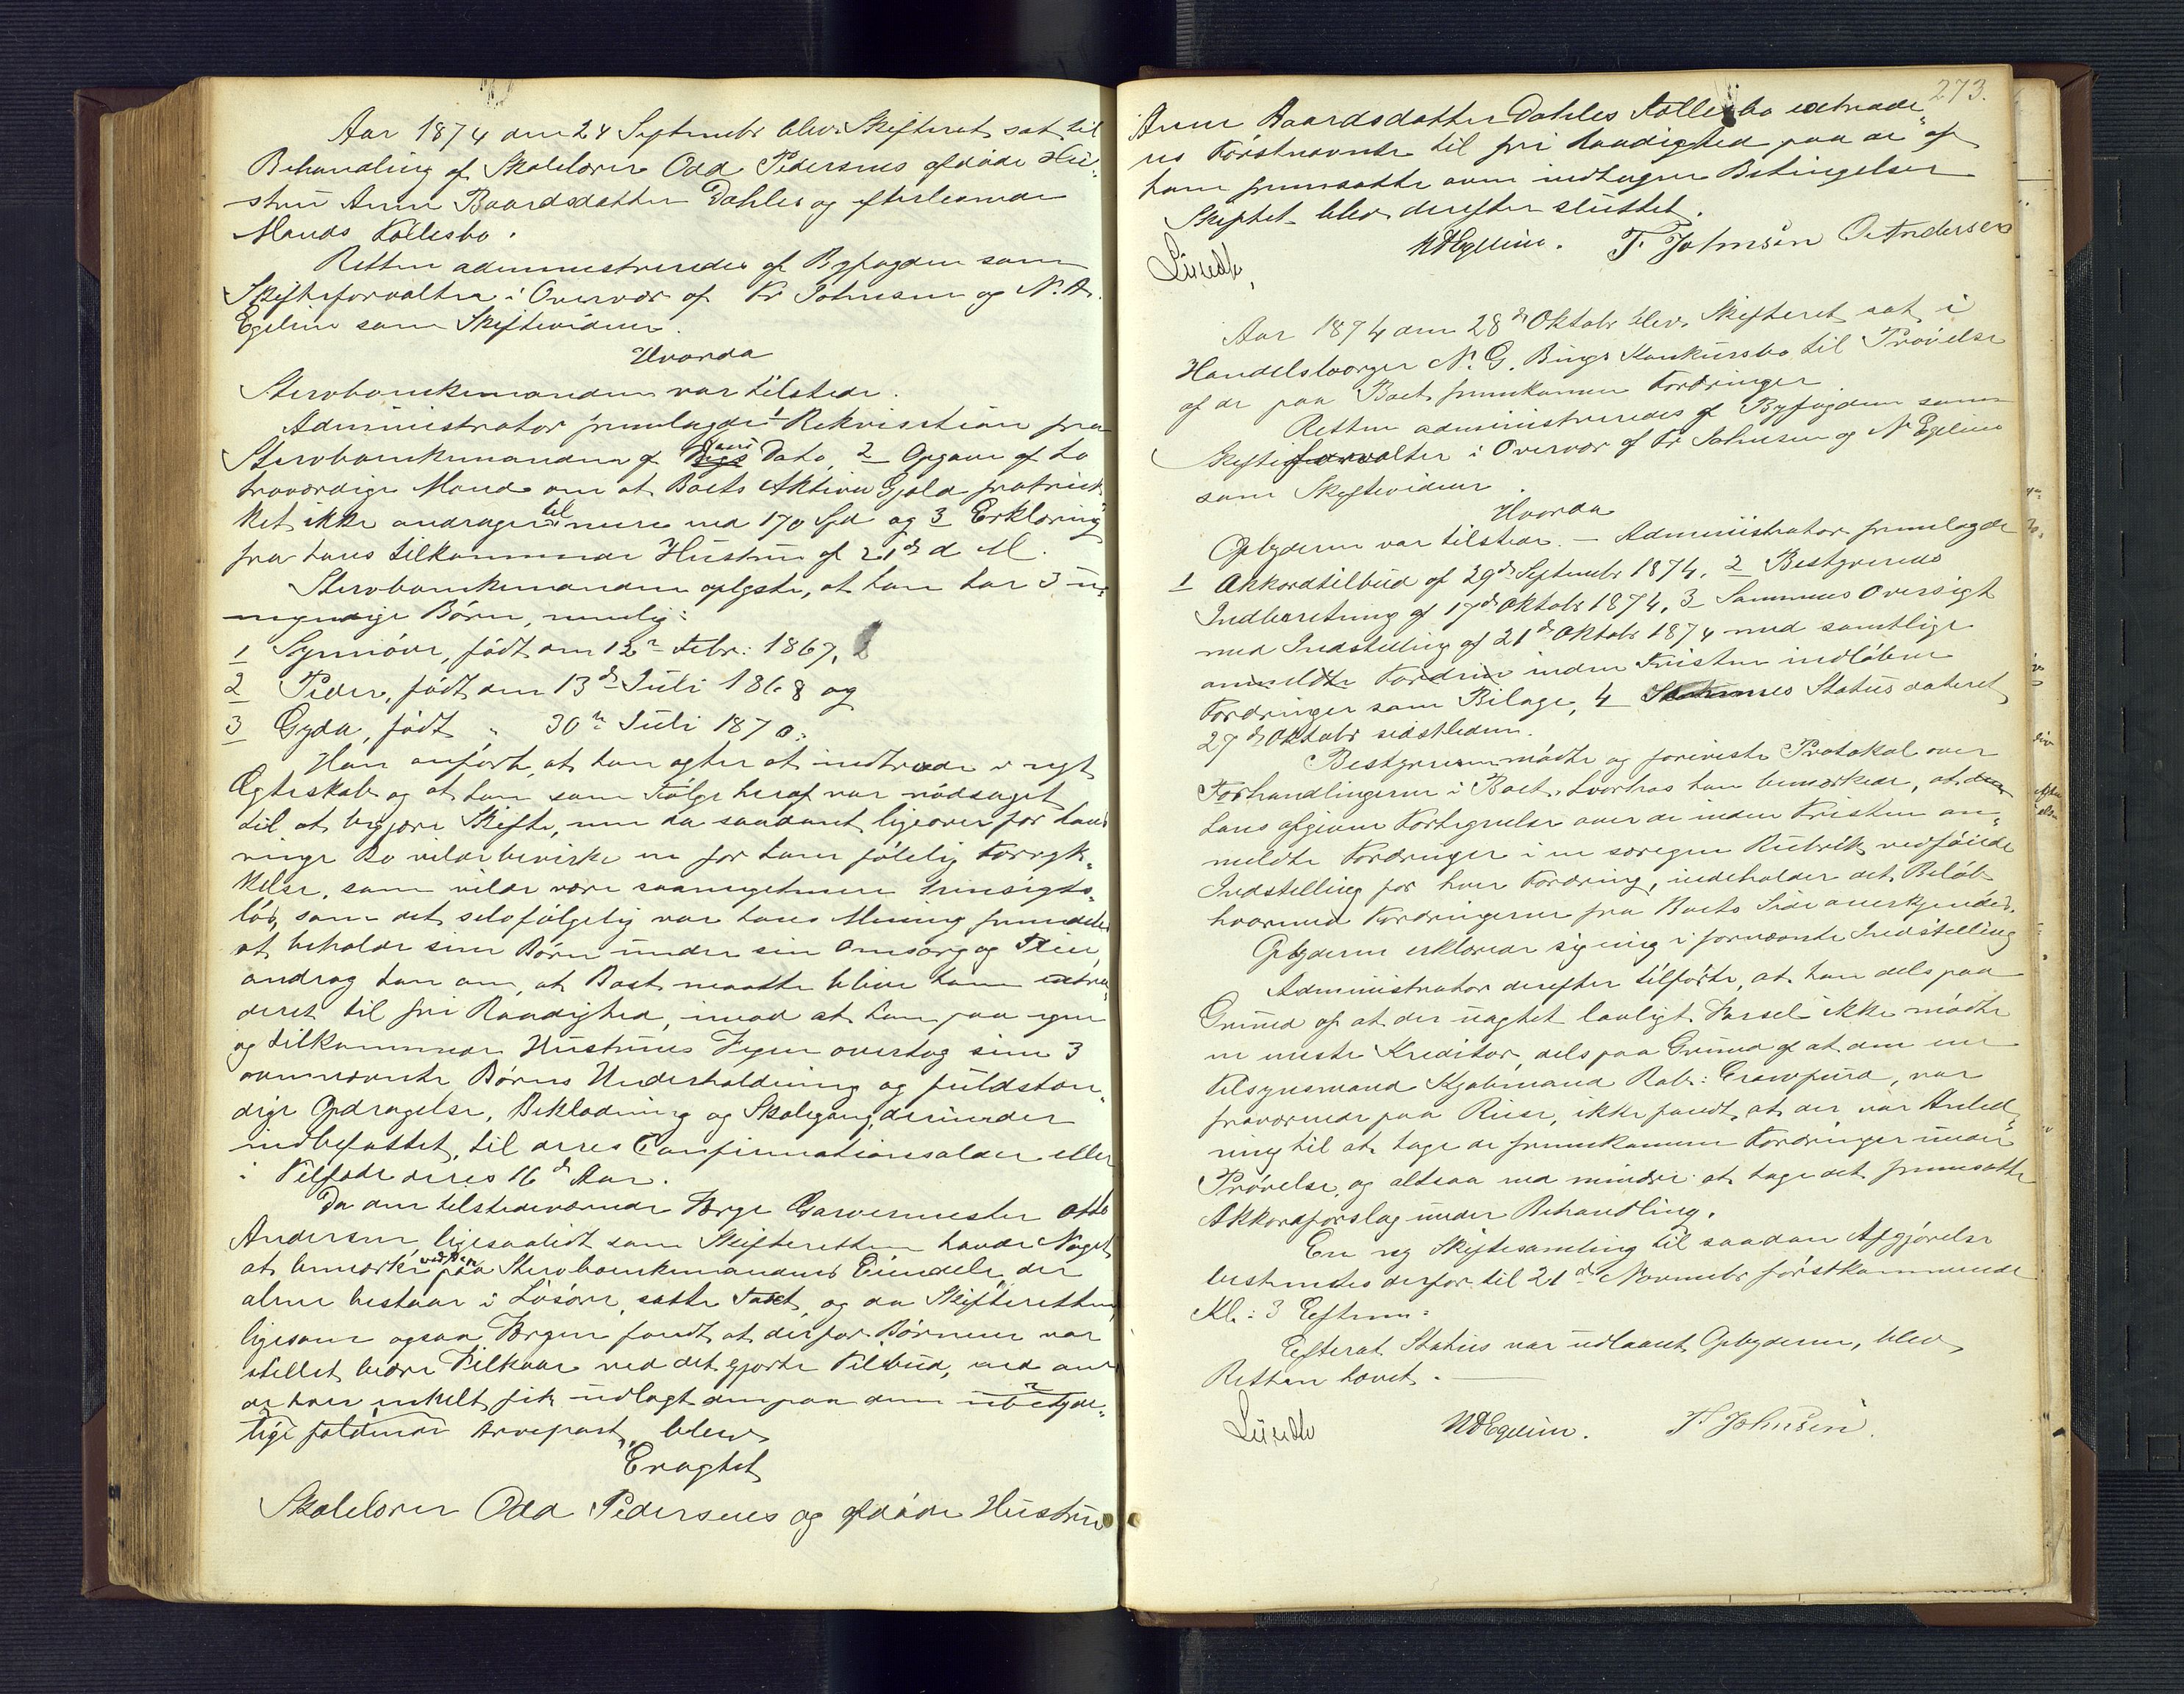 Aar 1874 den 24 Septembr blev Skifteret sat til
Behandling af Skolelærer Odd Pedersens afdøde Hu-
stru Anne Baardsdatter Dahles og efterlevende
Mands Fællesbo.
Retten administreredes af Byfogden som
Skifteforvalter i Overvær af Fr Johnsen og N. A.
Egelien som Skiftevidner.
Hvorda
Stervboenkemanden var tilstede.
Administrator fremlagde 1 Rekvisition fra
Stervboenkemanden af Dags Dato, 2 Opgave af to
troværdige Mænd om at Boets Aktiva Gjæld fratruk-
ket ikke andrager til mere end 170 Spd og 3 Erklæring
fra hans tilkommende Hustru af 21de d M.
Stervboenkemanden oplyste, at han har 3 u-
myndige Børn, nemlig:
1 Synnøve, født den 12te Febr: 1867,
2 Peder, født den 13de Juli 1868 og
3 Gyda, født " 30te Juli 1870.
Han anførte, at han agter at indtræde i nyt
Ægteskab og at han som Følge heraf var nødsaget
til at begjære Skifte, men da saadant ligeoverfor hans
ringe Bo vilde bevirke en for ham følelig Forryk-
kelse, som vilde være saameget mere hensigts-
løs, som det selvfølgelig var hans Mening fremdeles
at beholde sine Børn under sin Omsorg og Pleie,
androg han om, at Boet maatte blive ham extra-
deret til fri Raadighed, imod at han paa egne
og tilkommende Hustrues Vegne overtog sine 3
ovennævnte Børns Underholdning og fuldstæn-
dige Opdragelse, Beklædning og Skolegang derunder
indbefattet, til deres Confirmationsalder eller
i Tilfælde deres 16de Aar.
Da den tilstedeværende Værge Garvermester Otto
Andersen ligesaalidt som Skifteretten havde Noget
at bemærke ved den paa Stervboenkemandens Eiendele, der
alene bestaar i Løsøre, satte Taxt, og da Skifteretten,
ligesom ogsaa Værgen fandt, at derfor Børnene var
stillet bedre Vilkaar ved det gjorte Tilbud, end om
de hver enkelt fik udlagt dem paa dem ubetyde-
lige faldende Arvepart, blev
Eragtet
Skolelærer Odd Pedersens og afdøde Hustru
273.
Anne Baardsdatter Dahles Fællesbo extrade-
res Førstnævnte til fri Raadighed paa de af
ham fremsatte oven indtagne Betingelser
Skiftet blev derefter sluttet.
NAEgelien. F. Johnsen O Andersen
Aar 1874 den 28de Oktobr blev Skifteret sat i
Handelsborger N. G. Bings Konkursbo til Prøvelse
af de paa Boet fremkomne Fordringer.
Retten administreredes af Byfogden som
Skifteforvalter i Overvær af Fr Johnsen og N Egelien
som Skiftevidner
Hvorda
Opbyderen var tilstede. – Administrator fremlagde
1 Akkordtilbud af 29de Septembr 1874, 2 Bestyrerens
Indberetning af 17de Oktobr 1874, 3 Sammes Oversigt
med Indstilling af 21de Oktobr 1874 med samtlige
anmeldte Fordrin inden Fristen indløbne
Fordringer som Bilage, 4 Status dateret
27de Oktobr sidstleden.
Bestyreren mødte og foreviste Protokol over
Forhandlingerne i Boet, hvorhos han bemærkede, at den
hans afgivne Fortegnelse over de inden Fristen an-
meldte Fordringer i en særegen Rubrik vedføiede
Indstilling for hver Fordring, indeholder det Beløb
hvormed Fordringerne fra Boets Side anerkjendes.
Opbyderen erklærede sig enig i fornævnte Indstilling
Administrator derefter tilførte, at han dels paa
Grund af at der uagtet lovligt Varsel ikke mødte
en eneste Kreditor, dels paa Grund af at den ene
Tilsynsmand Kjøbmand Rob: Crawfurd, var
fraværende paa Reise, ikke fandt, at der var Anled-
ning til at tage de fremkomne Fordringer under
Prøvelse, og altsaa end mindre at tage det fremsatte
Akkordforslag under Behandling.
En ny Skiftesamling til saadan Afgjørelse
bestemtes derfor til 21de Novembr førstkommende
Kl: 3 Efterm:
Efterat Status var udlaant Opbyderen, blev
Retten hævet.
NAEgelien. F Johnsen.